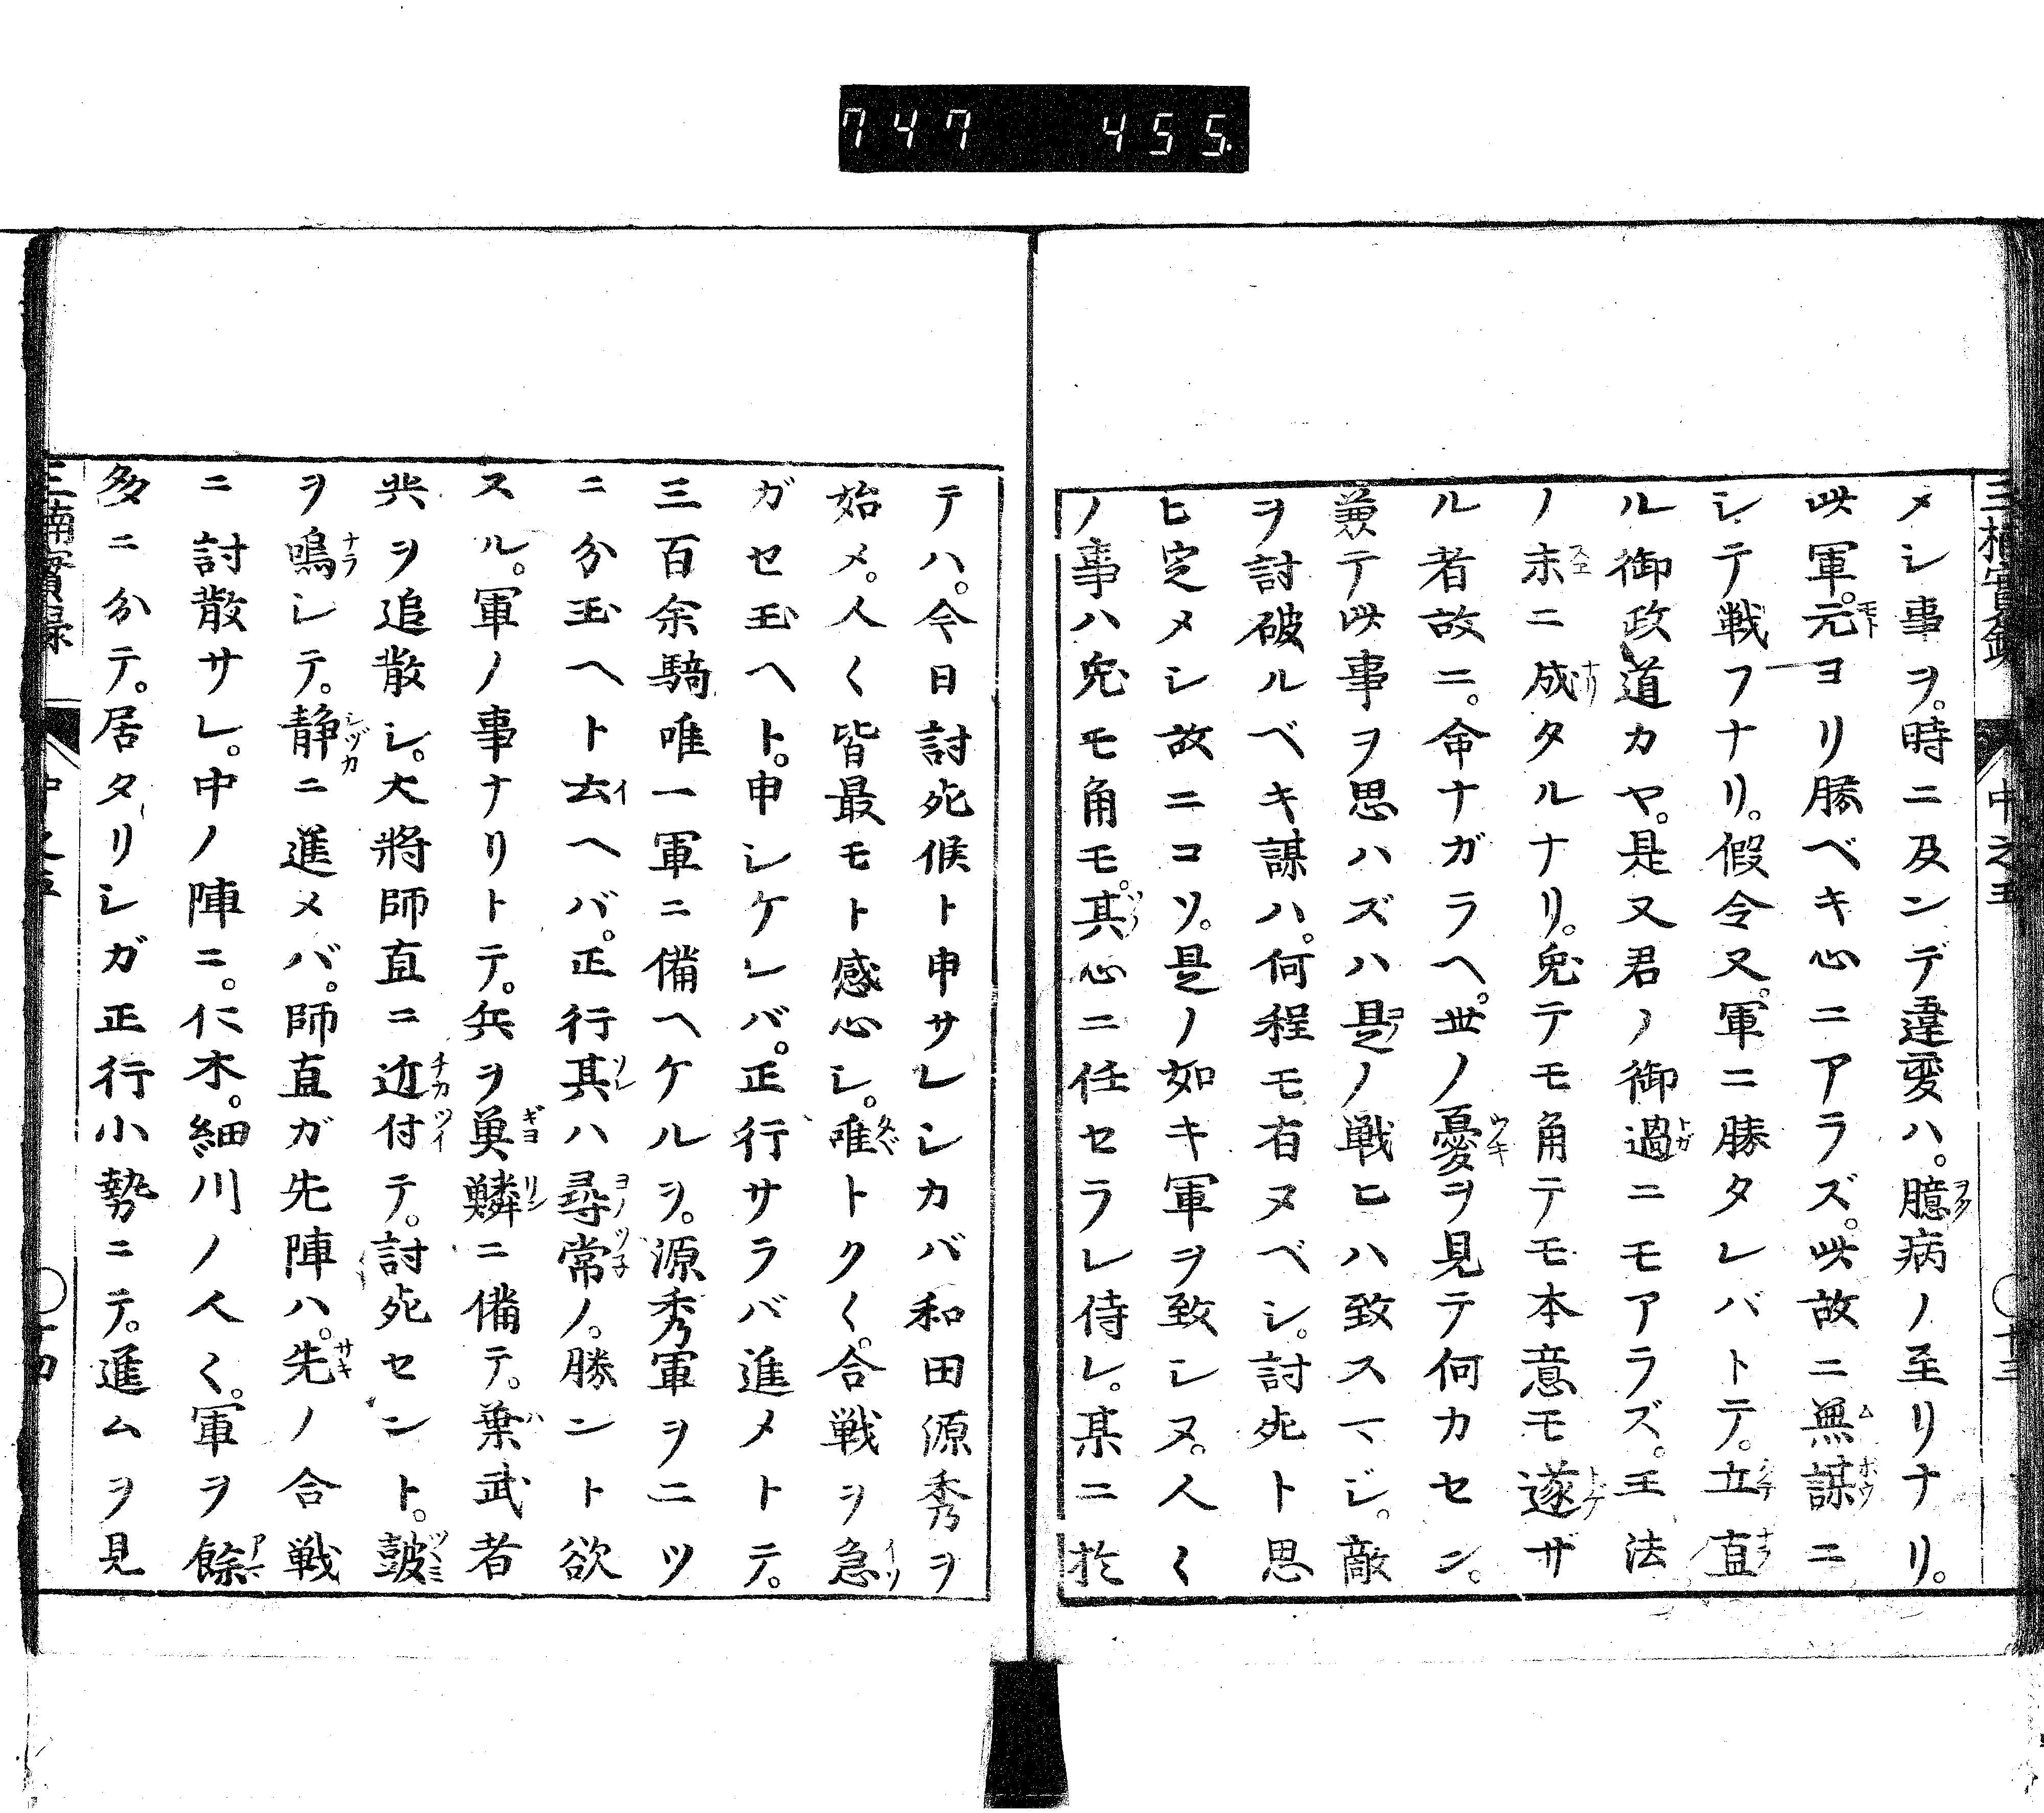 747 455
三楠實録 中之五 ○十三
メシ事ヲ。時ニ及ンデ違変ハ。臆病ノ至リナリ。
此軍。元ヨリ勝ベキ心ニアラズ。此故ニ無謀ニ
シテ戦フナリ。假令又。軍ニ勝タレバトテ。立直
ル御政道カヤ。是又君ノ御過ニモアラズ。王法
ノ末ニ成タルナリ。兎テモ角テモ本意モ遂ザ
ル者故ニ。命ナガラヘ。世ノ憂ヲ見テ何カセン。
兼テ此事ヲ思ハズハ是ノ戦ヒハ致スマジ。敵
ヲ討破ルベキ謀ハ。何程モ有ヌベシ。討死ト思
ヒ定メシ故ニコソ。是ノ如キ軍ヲ致シヌ。人〱
ノ事ハ兎モ角モ。其心ニ任セラレ侍レ。某ニ於
テハ。今日討死候ト申サレシカバ和田源秀ヲ
始メ。人〱皆最モト感心シ。唯トク〱。合戦ヲ急
ガセ玉ヘト。申シケレバ。正行サラバ進メトテ。
三百余騎唯一軍ニ備ヘケルヲ。源秀軍ヲニツ
ニ分玉ヘト云ヘバ。正行其ハ尋常ノ。勝ント欲
スル。軍ノ事ナリトテ。兵ヲ奠鱗ニ備テ。葉武者
共ヲ追散シ。大将師直ニ近付テ。討死セント。皷
ヲ鳴シテ。静ニ進メバ。師直ガ先陣ハ。先ノ合戦
ニ討散サレ。中ノ陣ニ。仁木。細川ノ人〱。軍ヲ餘
多ニ分テ。居タリシガ正行小勢ニテ。進ムヲ見
三楠實録